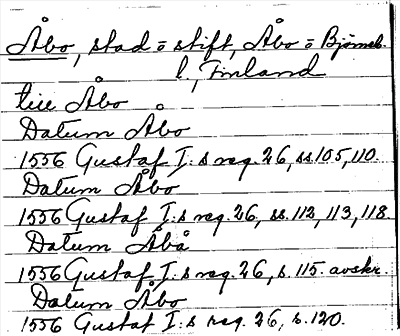 Åbo, stad o stift, Åbo o Björneb.
l., Finland
till Åbo
Datum Åbo
1556 Gustaf I:s reg. 26, ss. 105, 110.
Datum Åbo
1556 Gustaf I:s reg. 26, ss. 112, 113, 118
Datum Åbå
1556 Gustaf I:s reg. 26, s. 115. avskr.
Datum Åbo
1556 Gustaf I:s reg. 26, s. 120.